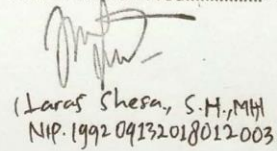 (Laras Shesa., S.H.,MH
NIP.199209132018012003